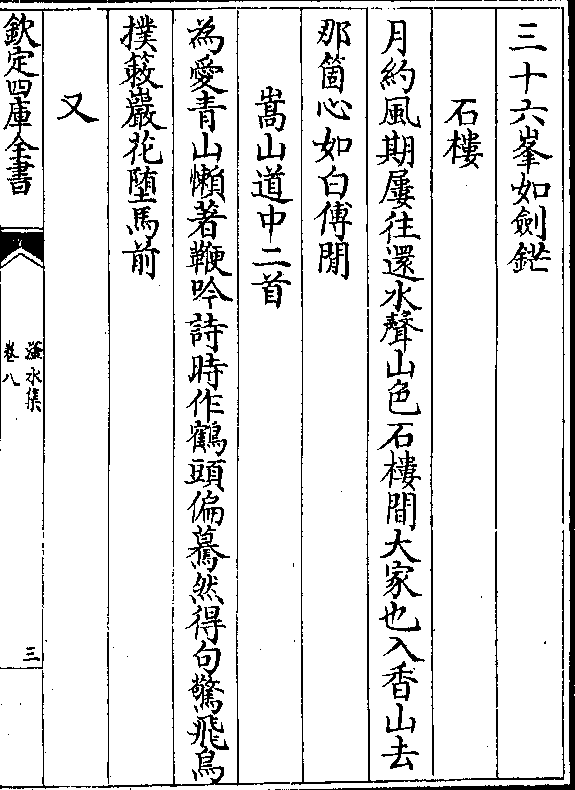 三十六峯如劍鋩
石樓
月約風期屢往還水聲山色石樓間大家也入香山去
那箇心如白傅閒
嵩山道中二首
為愛青山懶著鞭吟詩時作鶴頭偏驀然得句驚飛鳥
撲簌巖花墮馬前
又
欽定四庫全書
滏水集
卷八
三